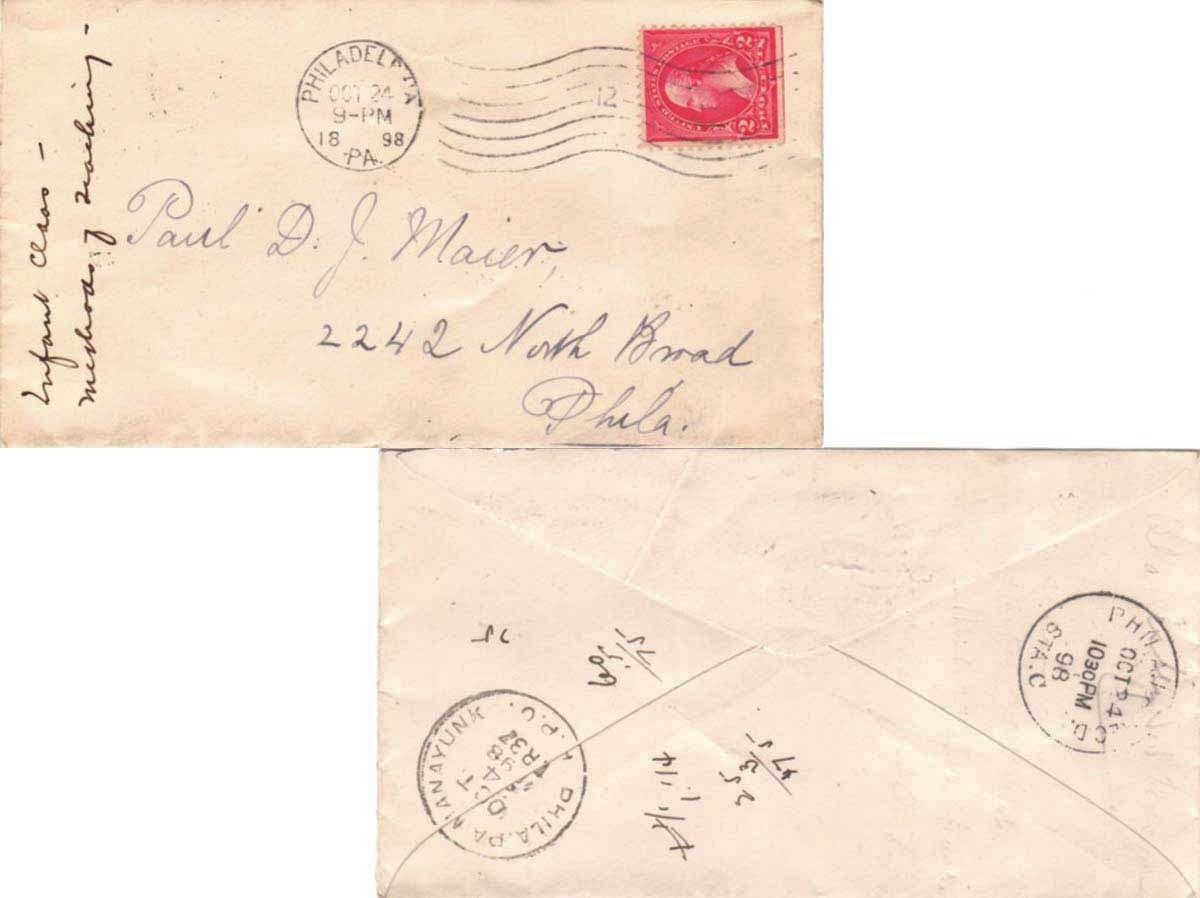 Infant Class –
Methods of Teaching –
PHILADELPHIA
OCT 24
9-PM
18 98
PA.
12
Paul D. J. Maier,
2242 North Broad
Phila.
PHILA. PA.
REC'D.
OCT 24
1030PM
98
STA. C
PHILA. PA MANAYUNK
R.P.O.
OCT.
24
98
TR37
75
25
23
475